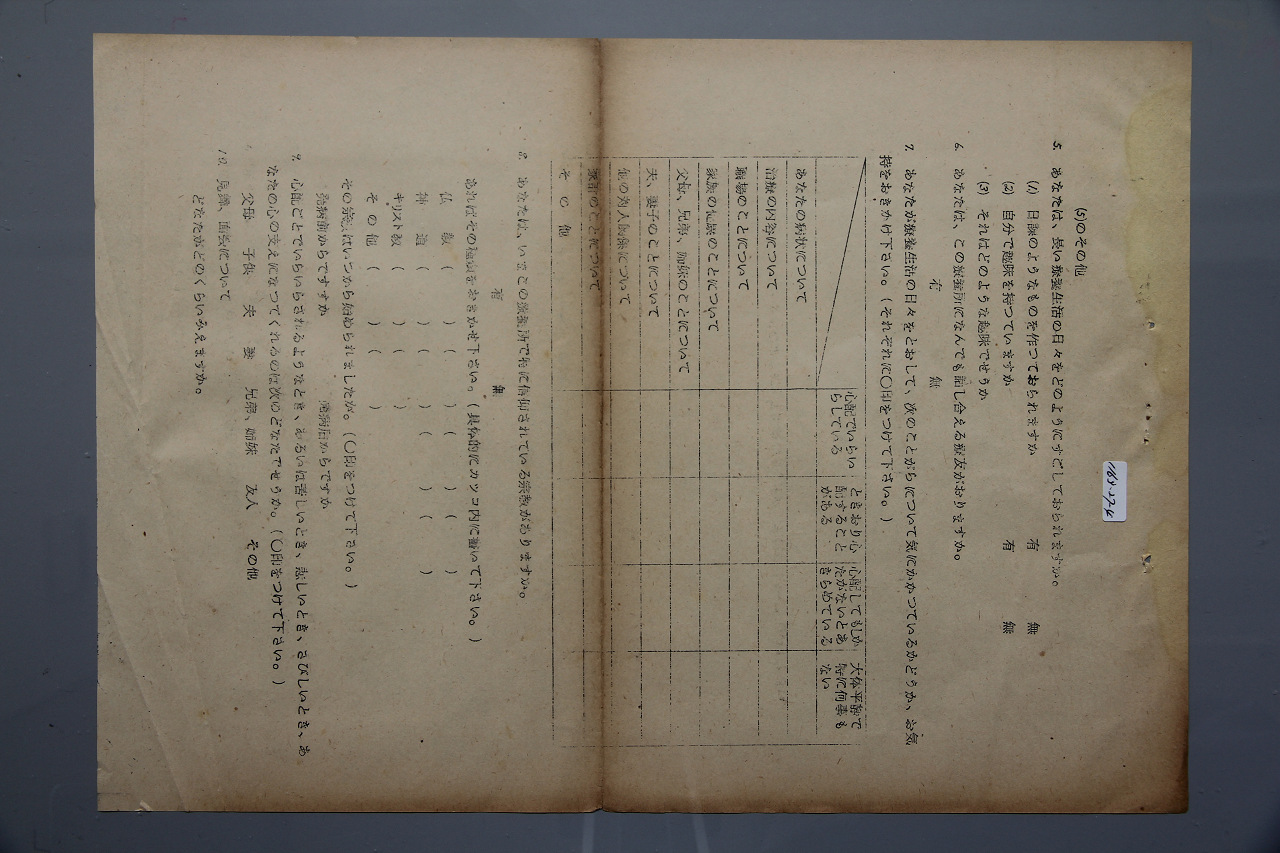 (5)のその他
5. あなたは、長い療養生活の日々をどのようにすごしておられますか。
(1) 日課のようなものを作つておられますか 有 無
(2) 自分で趣味を持つていますか 有 無
(3) それはどのような趣味でせうか
6. あなたは、この療養所になんでも話し合える療友がおりますか。
有 無
7. あなたが療養生活の日々をとおして、次のことがらについて気にかかつているかどうか、お気
持をおきかせ下さい。(それぞれに〇印をつけて下さい。)
心配でいらいらしている
ときおり心配することがある
心配してもしかたがないとあきらめている
大体平静で特に何事もない
あなたの病状について
治療の内容について
職場のことについて
家族の健康のことについて
父母、兄弟、姉妹のことについて
夫、妻子のことについて
他の対人関係について
家計のことについて
その他
8. あなたは、いまこの療養所で特に信仰されている宗教がありますか。
有 無
あればその種別をおきかせ下さい。(具体的にカツコ内に書いて下さい。)
仏教 ( ) ( )
神道 ( ) ( )
キリスト教 ( ) ( )
その他 ( )
その宗教はいつから始められましたか。(〇印をつけて下さい。)
発病前からですか 発病后からですか
9. 心配ごとでいらいらされるようなとき、あるいは苦しいとき、悲しいとき、さびしいとき、あ
なたの心の支えになつてくれるのは次のどなたでせうか。(〇印をつけて下さい。)
父母 子供 夫 妻 兄弟、姉妹 友人 その他
10. 見舞、面会について
どなたがどのくらいみえますか。
168-27-6